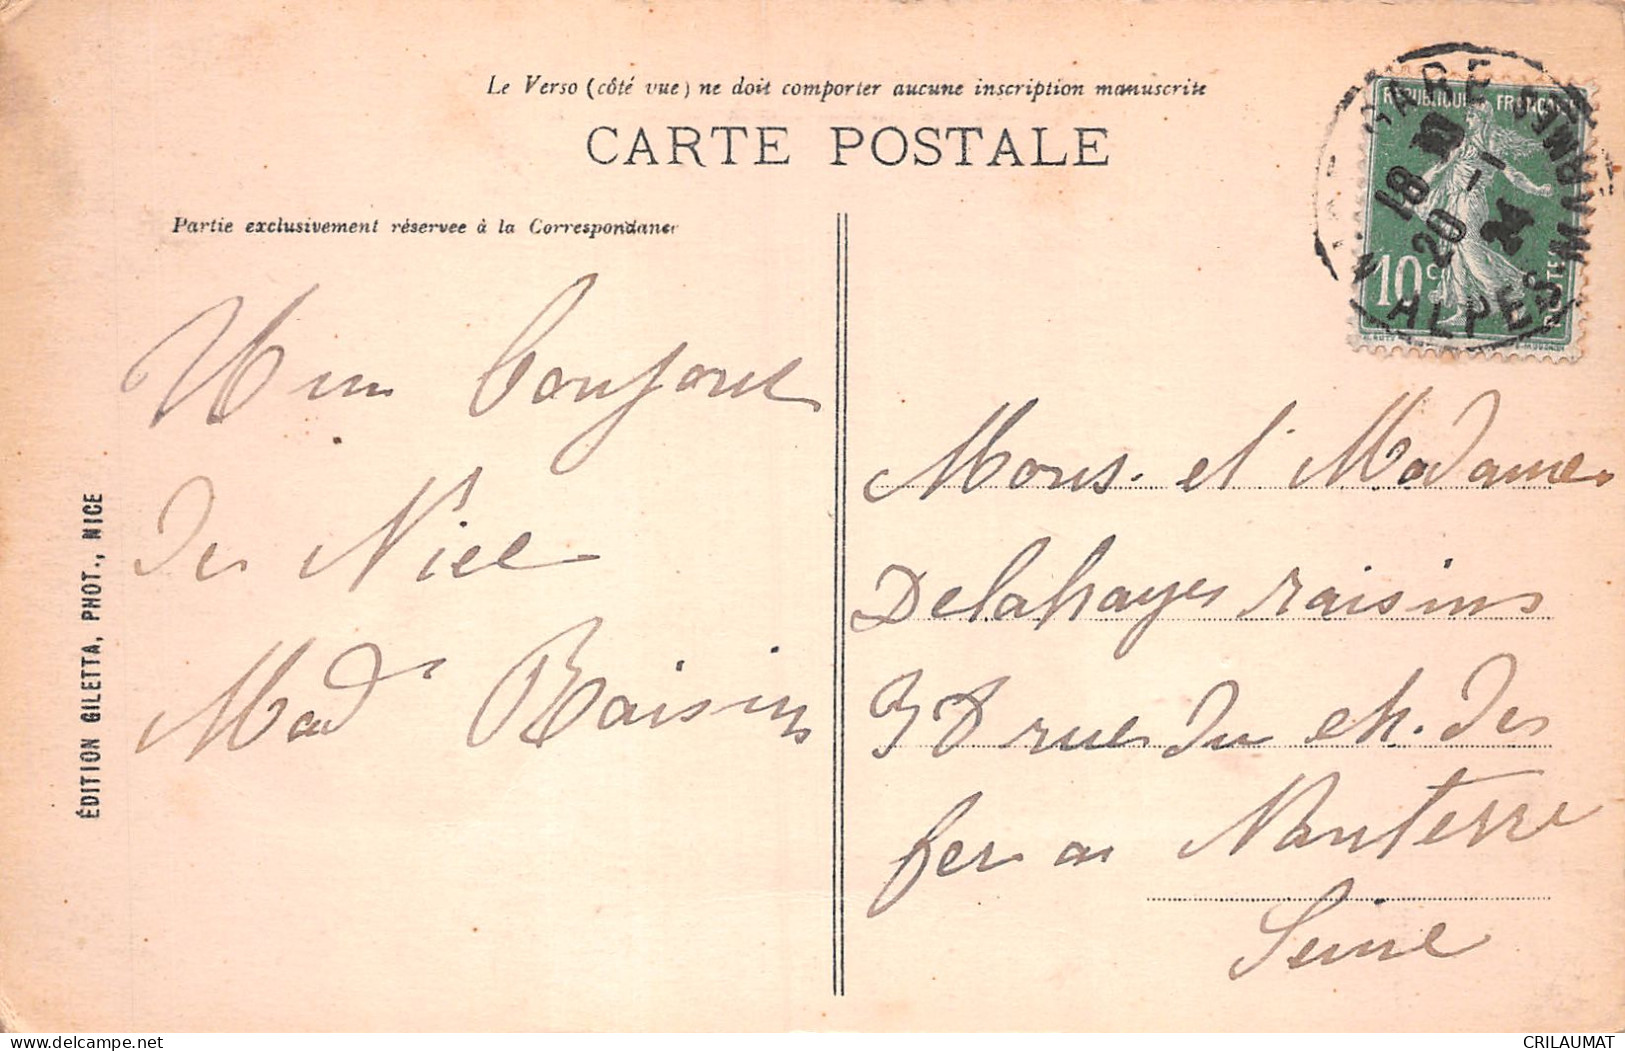 Le Verso (côté vue) ne doit comporter aucune inscription manuscrite
CARTE POSTALE
Partie exclusivement réservee à la Correspondance
REPUBLIQUE FRANÇAISE
10 c
POSTES
GARE
ALPES MARMES
18
20 - 1
24
Un bonjour
de Nice
Mad Raisin
Mons. et Madame
Delahayes raisins
rue du ch. des
fer a Nanterre
Seine
ÉDITION GILETTA, PHOT., NICE
CRILAUMAT